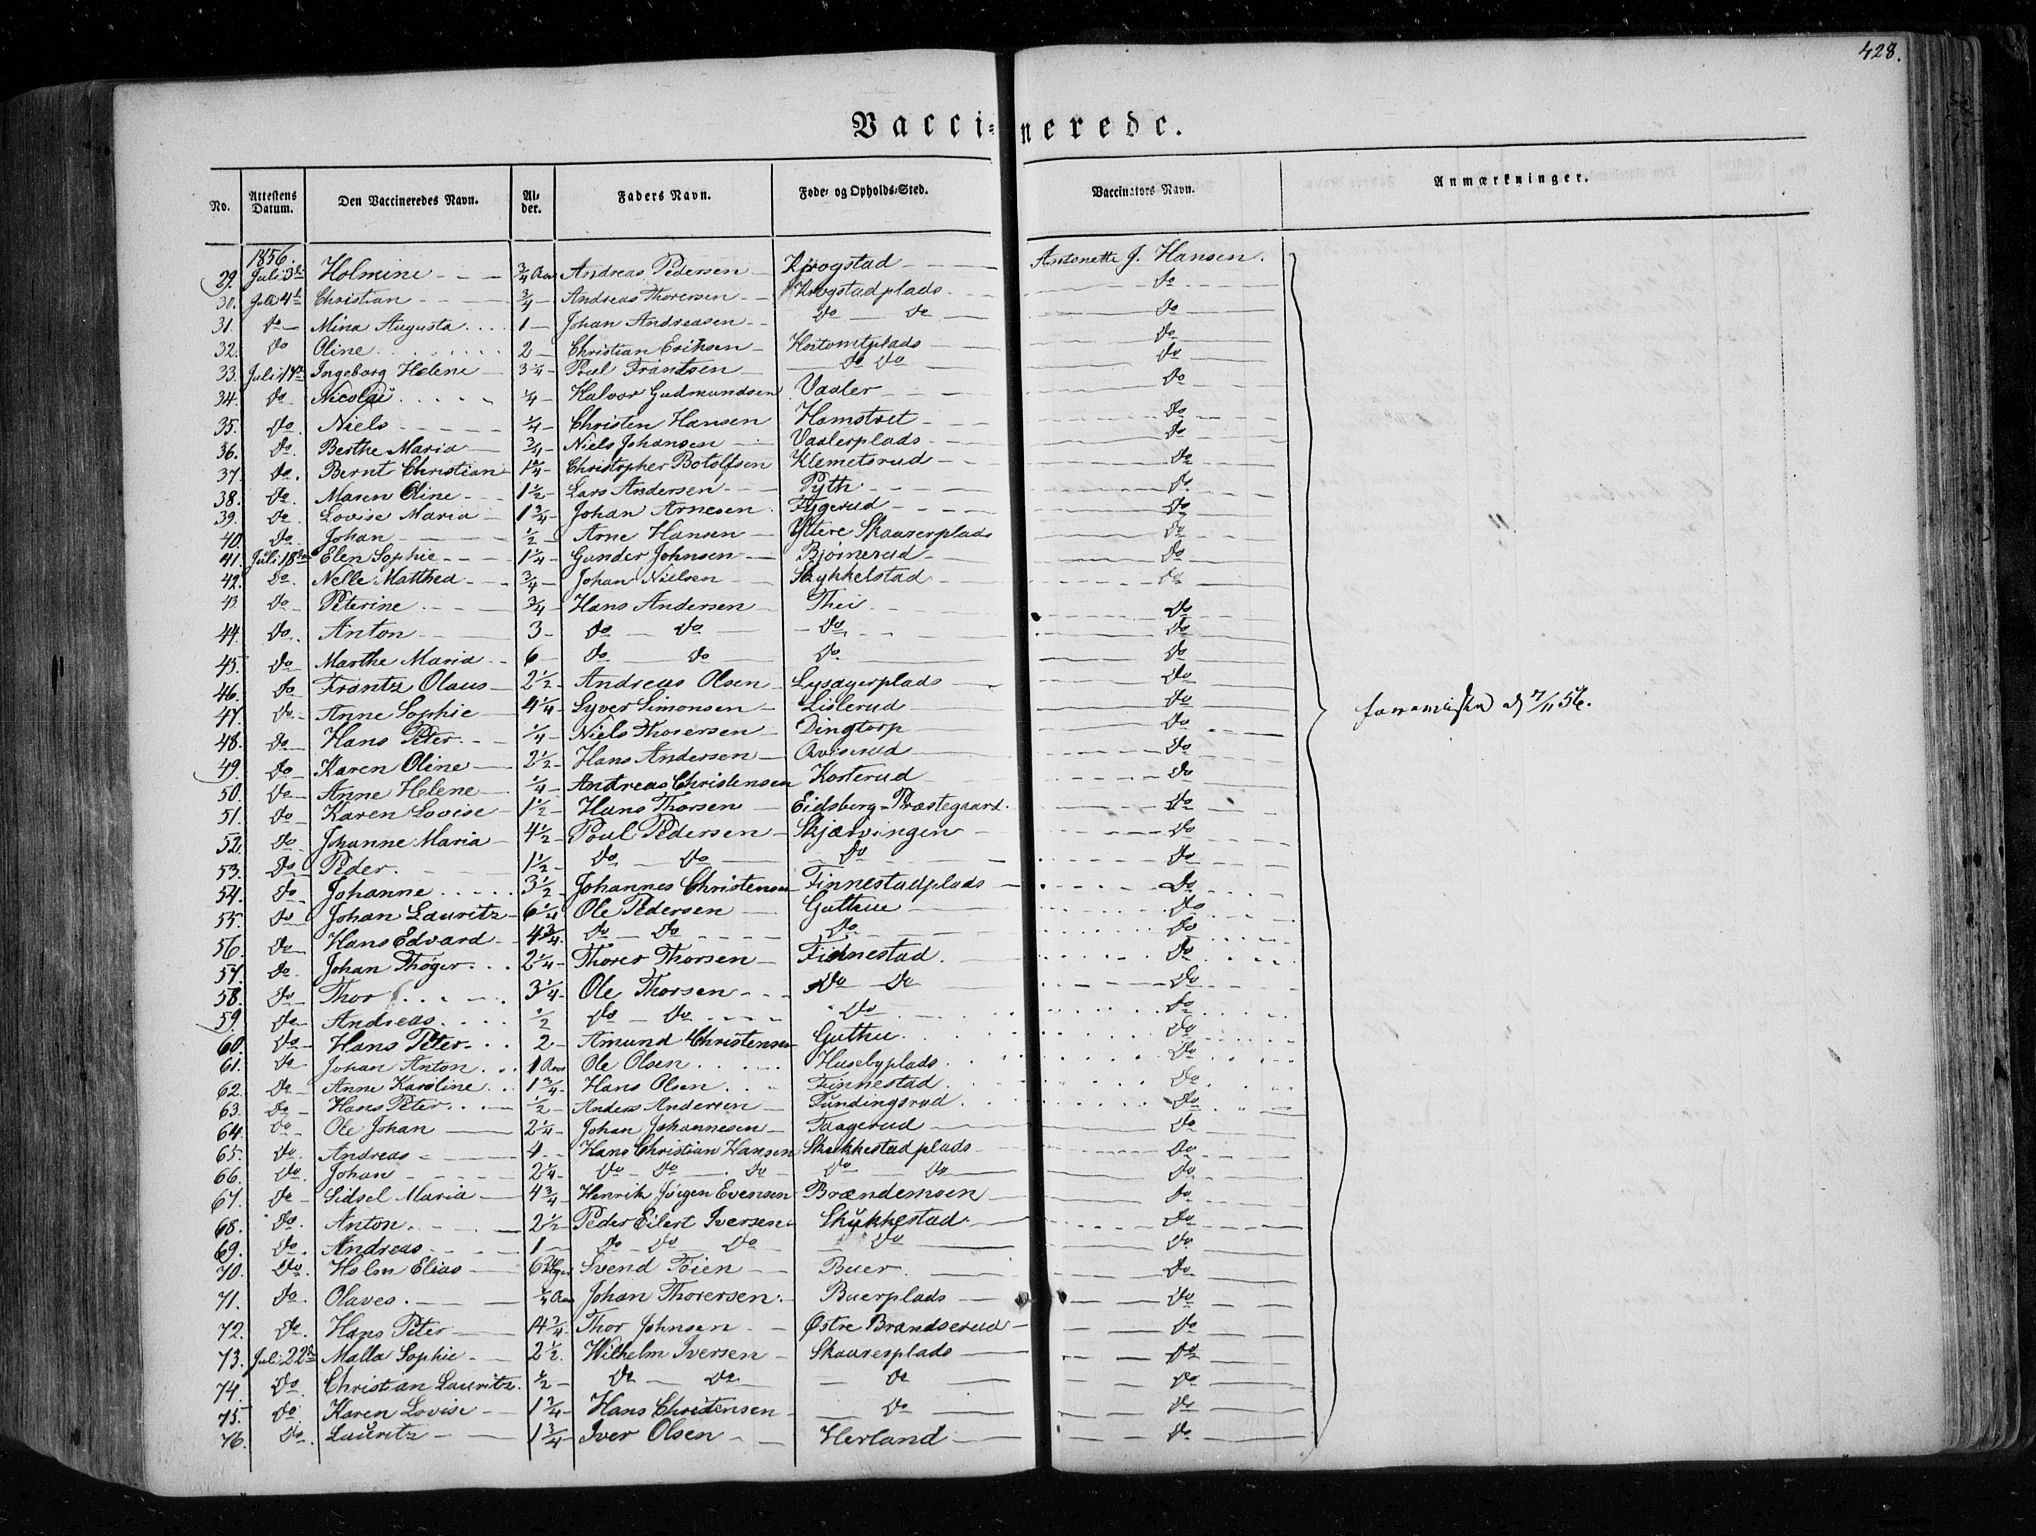 428.
Vaccinerede.
No. Attestens Datum. Den Vaccineredes Navn. Alder. Faders Navn. Føde- og Opholds-Sted. Vaccinators Navn. Anmærkninger.
1856.
29. Juli 3 Holmine ¾ Aar Andreas Pedersen Krogstad Antonette J. Hansen.
30. Juli 4 Christian ¾ Andreas Thoresen Krogstadplads do
31. do Mina Augusta 1 Johan Andreasen do do do
32. do Oline 2 Christian Eriksen Hostvetplads do
33. Juli 17 Ingeborg Helene 3¼ Poul Frantsen do do do
34. do Nicolai ¼ Halvor Gudmundsen Vadler do
35. do Niels ¼ Christen Hansen Hamstvet do
36. do Berthe Maria ¾ Niels Johansen Vaalerplads do
37. do Bernt Christian 1¾ Christopher Botolfsen Klemetsrud do
38. do Maren Oline 1½ Lars Andersen Pyth do
39. do Lovise Maria 1¾ Johan Arnesen Fygerud do
40. do Johan ½ Arne Hansen Yttere Skaarerplads do
41. Juli 18 Elen Sophie 1¼ Gunder Johnsen Bjørnerud do
42. do Nelle Mathea ¾ Johan Nielsen Skykkelstad do
43. do Peterine ¾ Hans Andersen Thei do
44. do Anton 3 do do do do
45. do Marthe Maria 6 do do do do
46. do Frantz Olaus 2½ Andreas Olsen Lysagerplads do
47. do Anne Sophie 4¼ Syver Simonsen Lislerud do
48. do Hans Peter ¼ Niels Thoresen Dingtorp do
49. do Karen Oline 2½ Hans Andersen Qviserud do
50. do Anne Helene ¼ Andreas Christensen Korterud do
51. do Karen Lovise 1½ Hans Thorsen Eidsberg-Præstegaard. do
52. do Johanne Maria 4½ Poul Pedersen Skjærvingen do
53. do Peder. 1½ do do do do
54. do Johanne 3½ Johannes Christensen Finnestadplads do
55. do Johan Lauritz 6¼ Ole Pedersen Guthue do
56. do Hans Edvard 4¾ do do do do
57. do Johan Thøger 2¼ Thorer Thorsen Finnestad. do
58. do Thor 3¼ Ole Thorsen do do do
59. do Andreas ½ do do do do
60. do Hans Peter 2 Amund Christensen Guthu do
61. do Johan Anton 1 Aar Ole Olsen Husebyplads do
62. do Anne Karoline 1¾ Hans Olsen Finnestad do
63. do Hans Peter ½ Anders Andersen Fundingsrud do
64. do Ole Johan 2¼ Johan Johannesen Taagerud do
65. do Andreas 4 Hans Christian Hansen Skykkestadplads do
66. do Johan 2¼ do do do do do do
67. do Sidsel Maria 4¾ Henrik Jørgen Evensen Brændemoen do
68. do Anton 2½ Peder Eilert Iversen Skykkestad do
69. do Andreas 1 do do do do do
70. do Holm Elias 6 Svend Foien Buer do
71. do Olaves Johan Thorersen Buerplads do
72. do Hans Peter 14¾ Thor Johnsen Østre Brandserud do
73. Juli 22 Malla Sophie 2½ Wilhelm Iversen Skaarerplads do
74. do Christian Lauritz ½ do do do do
75. do Karen Lovise 1¾ Hans Christensen do do
76. do Lauritz 1¾ Iver Olsen Herland do
7/11 56.